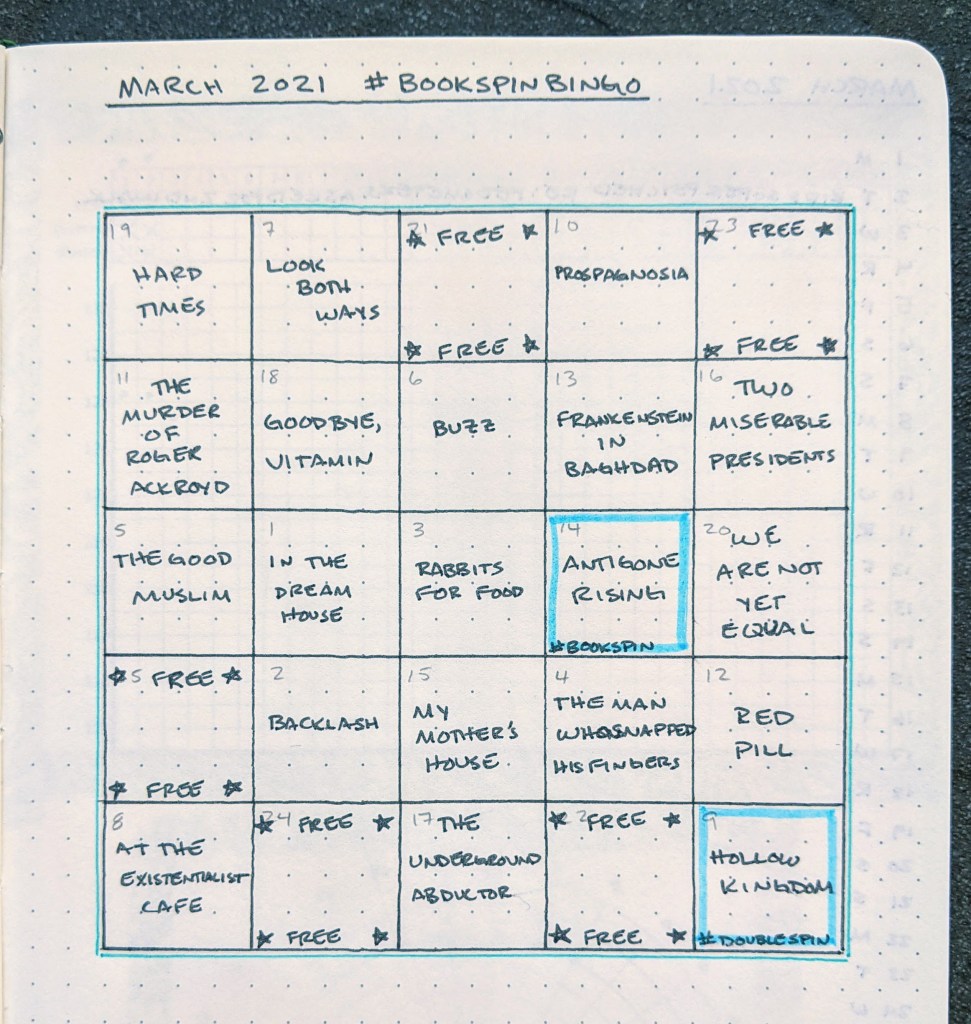 MARCH 2021 #BOOKSPINBINGO
19
HARD
TIMES
7
LOOK
BOTH
WAYS
21
FREE
FREE
10
PROSPAGNOSIA
23
FREE
FREE
11
THE
MURDER
OF
ROGER
ACKROYD
18
GOODBYE,
VITAMIN
6
BUZZ
13
FRANKENSTEIN
IN
BAGHDAD
16
TWO
MISERABLE
PRESIDENTS
5
THE GOOD
MUSLIM
1
IN THE
DREAM
HOUSE
3
RABBITS
FOR FOOD
14
ANTIGONE
RISING
#BOOKSPIN
20
WE
ARE NOT
YET
EQUAL
FREE
FREE
2
BACKLASH
15
MY
MOTHER'S
HOUSE
4
THE MAN
WHO SNAPPED
HIS FINGERS
12
RED
PILL
8
AT THE
EXISTENTIALIST
CAFE
24
FREE
FREE
17
THE
UNDERGROUND
ABDUCTOR
FREE
FREE
9
HOLLOW
KINGDOM
#DOUBLESPIN